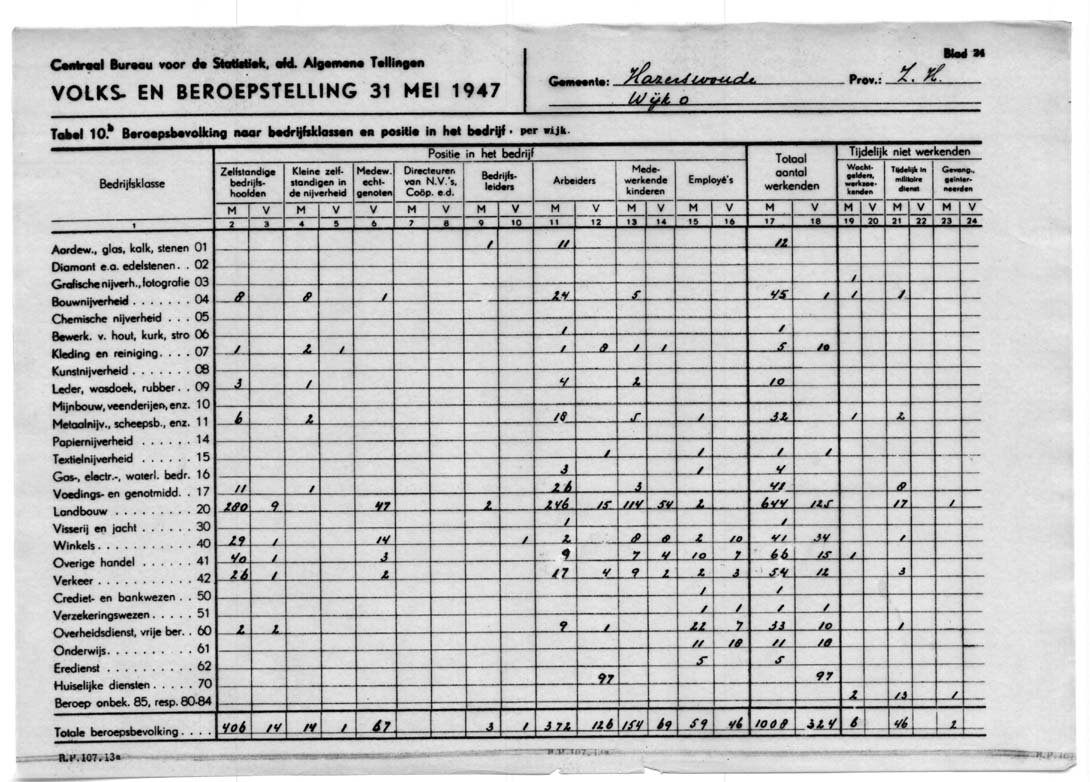 Blad 24
Centraal Bureau voor de Statistiek, afd. Algemene Tellingen
Gemeente: Hazerswoude Prov.: Z. H.
VOLKS- EN BEROEPSTELLING 31 MEI 1947
Wijk o
Tabel 10.b Beroepsbevolking naar bedrijfsklassen en positie in het bedrijf, per wijk.
Bedrijfsklasse
Positie in het bedrijf
Totaal aantal werkenden
Tijdelijk niet werkenden
Zelfstandige bedrijfs-hoofden
Kleine zelf-standigen in de nijverheid
Medew. echt-genoten
Directeuren van N.V.'s, Coöp. e.d.
Bedrijfs-leiders
Arbeiders
Mede-werkende kinderen
Employé's
Wacht-gelders, werkzoe-kenden
Tijdelijk in militaire dienst
Gevang., geïnter-neerden
M V M V V M V M V M V M V M V M V M V M V M V
1 2 3 4 5 6 7 8 9 10 11 12 13 14 15 16 17 18 19 20 21 22 23 24
Aardew., glas, kalk, stenen 01 1 11 12
Diamant e.a. edelstenen. . 02
Grafische nijverh., fotografie 03 1
Bouwnijverheid . . . . . . . 04 8 8 1 24 5 45 1 1 1
Chemische nijverheid . . . 05
Bewerk. v. hout, kurk, stro 06 1 1
Kleding en reiniging. . . . 07 1 2 1 1 8 1 1 5 10
Kunstnijverheid . . . . . . . 08
Leder, wasdoek, rubber. . 09 3 1 4 2 10
Mijnbouw, veenderijen, enz. 10
Metaalnijv., scheepsb., enz. 11 6 2 18 5 1 32 1 2
Papiernijverheid . . . . . . 14
Textielnijverheid . . . . . . 15 1 1 1 1
Gas-, electr.-, waterl. bedr. 16 3 1 4
Voedings- en genotmidd. . 17 11 1 26 3 41 8
Landbouw . . . . . . . . . . 20 280 9 47 2 246 15 114 54 2 644 125 17 1
Visserij en jacht . . . . . . 30 1 1
Winkels . . . . . . . . . . . 40 29 1 14 1 2 8 8 2 10 41 34 1
Overige handel . . . . . . . 41 40 1 3 9 7 4 10 7 66 15 1
Verkeer . . . . . . . . . . . 42 26 1 2 17 4 9 2 2 3 54 12 3
Crediet- en bankwezen . . 50 1 1
Verzekeringswezen. . . . . 51 1 1 1 1
Overheidsdienst, vrije ber. . 60 2 2 9 1 22 7 33 10 1
Onderwijs. . . . . . . . . . 61 11 18 11 18
Eredienst . . . . . . . . . . 62 5 5
Huiselijke diensten . . . . . 70 97 97
Beroep onbek. 85, resp. 80-84 2 13 1
Totale beroepsbevolking . . . . 406 14 14 1 67 3 1 372 126 154 69 59 46 1008 324 6 46 2
R.P.107.13a